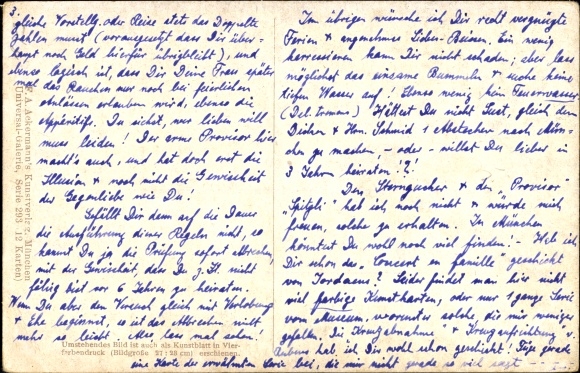 3.
gleiche Vorstellg. oder Reise stets das Doppelte
zahlen musst (vorausgesetzt dass Dir über-
haupt noch Geld hierfür übrigbleibt), und
ebenso logisch ist, dass Dir Deine Frau später
mal das Rauchen nur noch bei feierlichen
Anlässen erlauben wird, ebenso die
Appéritifs. Du siehst, wer lieben will
muss leiden! Der arme Provisor hier
macht's auch, und hat doch erst die
Illusion & noch nicht die Gewissheit
der Gegenliebe wie Du!
Gefällt Dir denn auf die Dauer
die Ausführung dieser Regeln nicht, so
kannst Du ja die Prüfung sofort abbrechen,
mit der Gewissheit, dass Du z. Zt. nicht
fähig bist vor 6 Jahren zu heiraten.
Wenn Du aber den Versuch gleich mit Verlobung
& Ehe beginnst, so ist das Abbrechen nicht
mehr so leicht. Also lass mal sehen!
F. A. Ackermann's Kunstverlag, München
Universal-Galerie, Serie 293 (12 Karten)
Umstehendes Bild ist auch als Kunstblatt in Vier-
farbendruck (Bildgröße 27:38 cm) erschienen.
Im übrigen wünsche ich Dir recht vergnügte
Ferien & angenehmes Liden-Reisen. Ein wenig
karressieren kann Dir nicht schaden; aber lass
möglichst das einsame Bummeln & suche keine
tiefen Wasser auf! Ebenso wenig kein Feuerwasser
Hättest Du nicht Lust, gleich dem
Schmid 1 Abstecher nach Mün-
chen zu machen, – oder – willst Du lieber in
3 Jahren heiraten!?!
Den Sterngucker & den „Provisor
hab ich noch nicht & würde mich
freuen solche zu erhalten. In München
könntest Du wohl noch viel finden! – Hab ich
Dir schon das „Concert en famille" geschickt
von Jordaens? Leider findet man hier nicht
viel farbige Kunstkarten, oder nur 1 ganze Serie
vom Museum, worunter solche, die mir weniger
gefallen. Die Kreuzabnahme" & Kreuzaufrichtung v.
Rubens hab ich Dir wohl schon geschickt! Füge gerade
eine Karte der erwähnten Serie bei, die mir nicht gerade so viel sagt